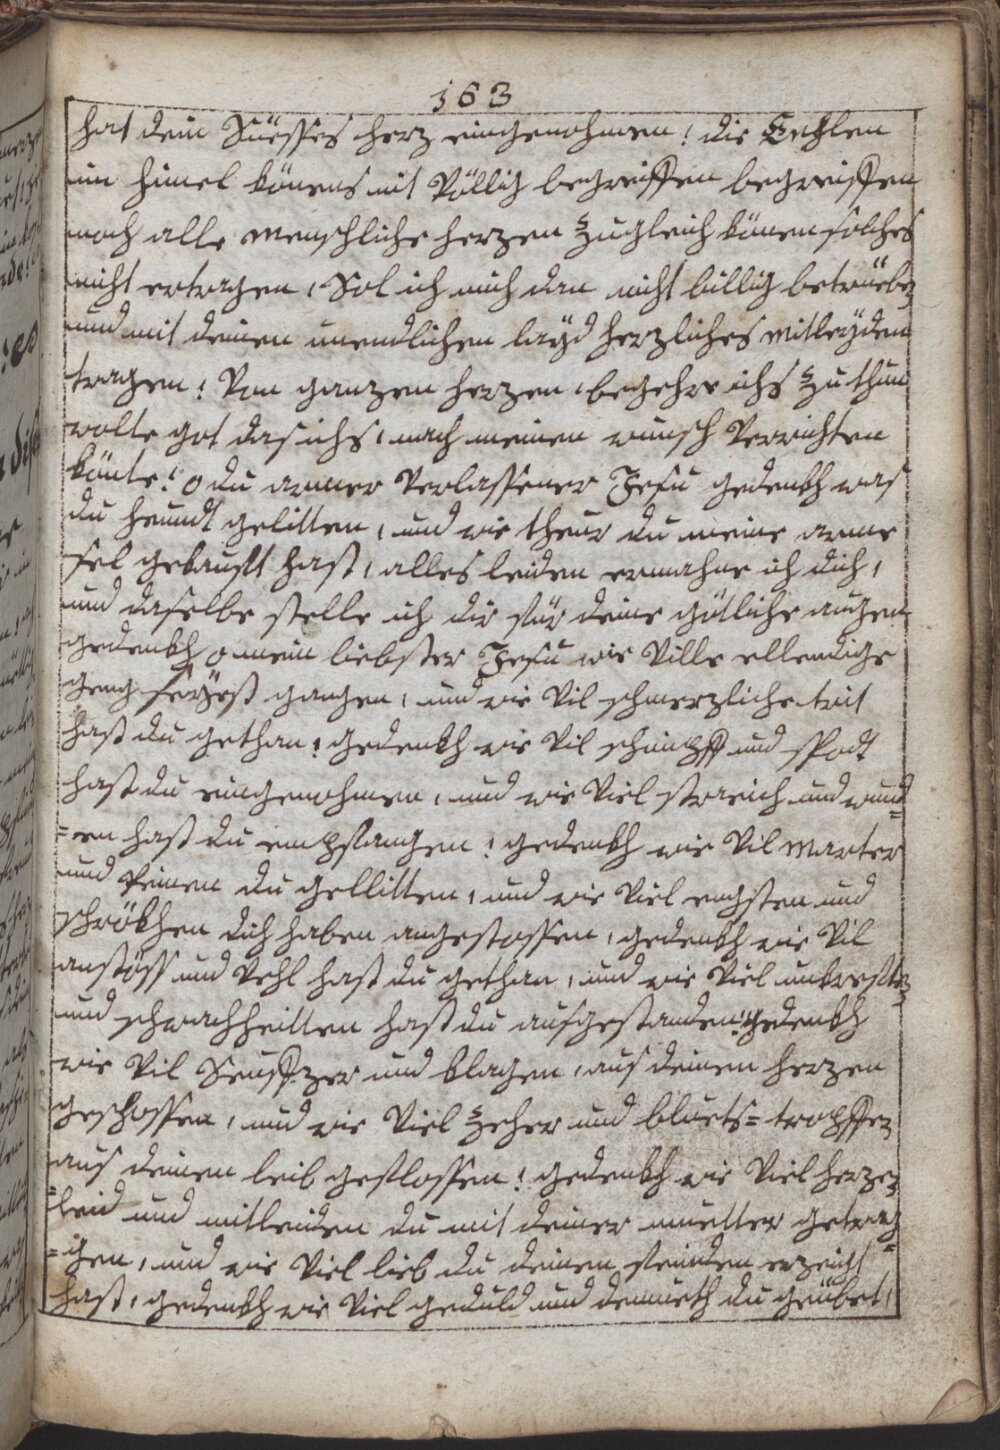 163
hat dein Süesses herz eingenohmen! die Englen
im himel könens nit Völlig begreiffen begreiffen
noch alle menschliche herzen zugleich könen solches
nicht ertragen, Sol ich mich dan nicht billig betrüeben
und mit deinen unendlichen layd herzliches mitleyden
tragen! Von ganzen herzen, begehre ichs zu thun
wolte got das ichs, nach meinen wunsch Verrichten
könte! o du armer Verlassener Jesu gedenkh was
du heundt gelitten, und wie theur du meine arme
sel gekaufft hast, alles leiden ermahne ich dich,
und daselbe stelle ich dir für deine götliche augen
gedenkh o mein liebster Jesu wie Ville ellendige
geng seyest gangen, und wie Vil schmerzliche trit
hast du gethan! gedenkh wie Vil schimpff und spodt
hast du eingenohmen, und wie Viel streich und wund=
=en hast du empfangen! gedenkh wie Vil marter
und Peinen du gellitten, und wie Viel engsten und
schrökhen dich haben angestossen, gedenkh wie Vil
anstöss und Vehl hast du gethan, und wie Viel unkrefften
und schwachheitten hast du aufgestanden! gedenkh
wie Vil Seuffzer und klagen, aus deinen herzen
geschossen, und wie Viel zeher und bluets=tropffen
aus deinen leib geflossen! gedenkh wie Viel herzen
=leid und mitleiden du mit deiner muetter getrag=
=gen, und wie Viel lieb du deinen feinden erzeigt
hast, gedenkh wie Viel geduld und demueth du geübet,